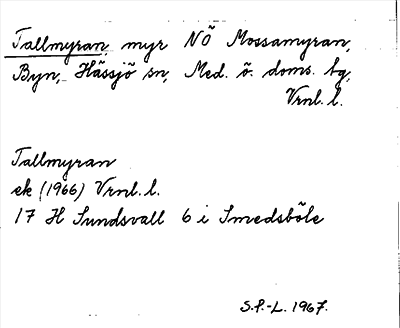 Tallmyran, myr NÖ Mossamyran,
Byn, Hässjö sn, Med. ö. doms. bg,
Vrnl. l.
Tallmyran
ek (1966) Vrnl. l.
17 H Sundsvall 6 i Smedsböle
S.P.-L. 1967.